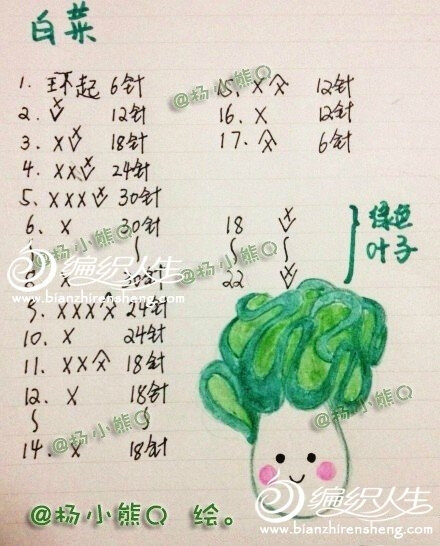 白菜
1. 环起 6针
2. V̌ 12针
3. XV̌ 18针
4. XXV̌ 24针
5. XXXV̌ 30针
6. X 30针
⟆ ⟆
8. X 30针
9. XXX仌 24针
10. X 24针
11. XX仌 18针
12. X 18针
⟆ ⟆
14. X 18针
15. X仌 12针
16. X 12针
17. 仌 6针
18 V̌
⟆ ⟆
22 V̌
绿色
叶子
@杨小熊Q
@杨小熊Q
@杨小熊Q
编织人生
www.bianzhirensheng.com
@杨小熊Q
@杨小熊Q
@杨小熊Q 绘。
编织人生
www.bianzhirensheng.com